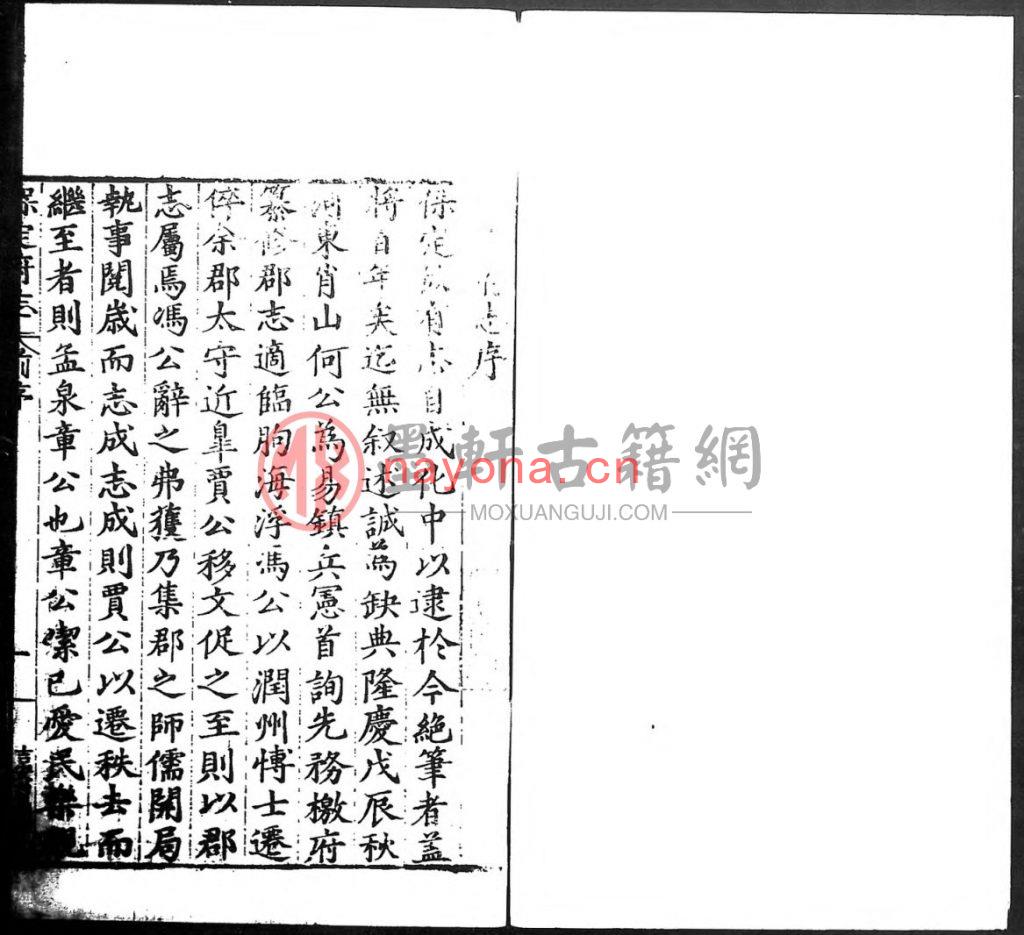 志序
保定故有志自成化中以逮於今絶筆者盖
將百年矣迄無叙述誠為缺典隆慶戊辰秋
河東肖山何公為易鎮兵憲首詢先務檄府
纂修郡志適臨朐海浮馮公以潤州博士遷
倅余郡太守近臯賈公移文促之至則以郡
志屬焉馮公辭之弗獲乃集郡之師儒開局
執事閱歲而志成志成則賈公以遷秩去而
繼至者則孟泉章公也章公潔已愛民樂觀
保定府志 前序 一
墨軒古籍網
nayona.cn
MOXUANGUJI.COM